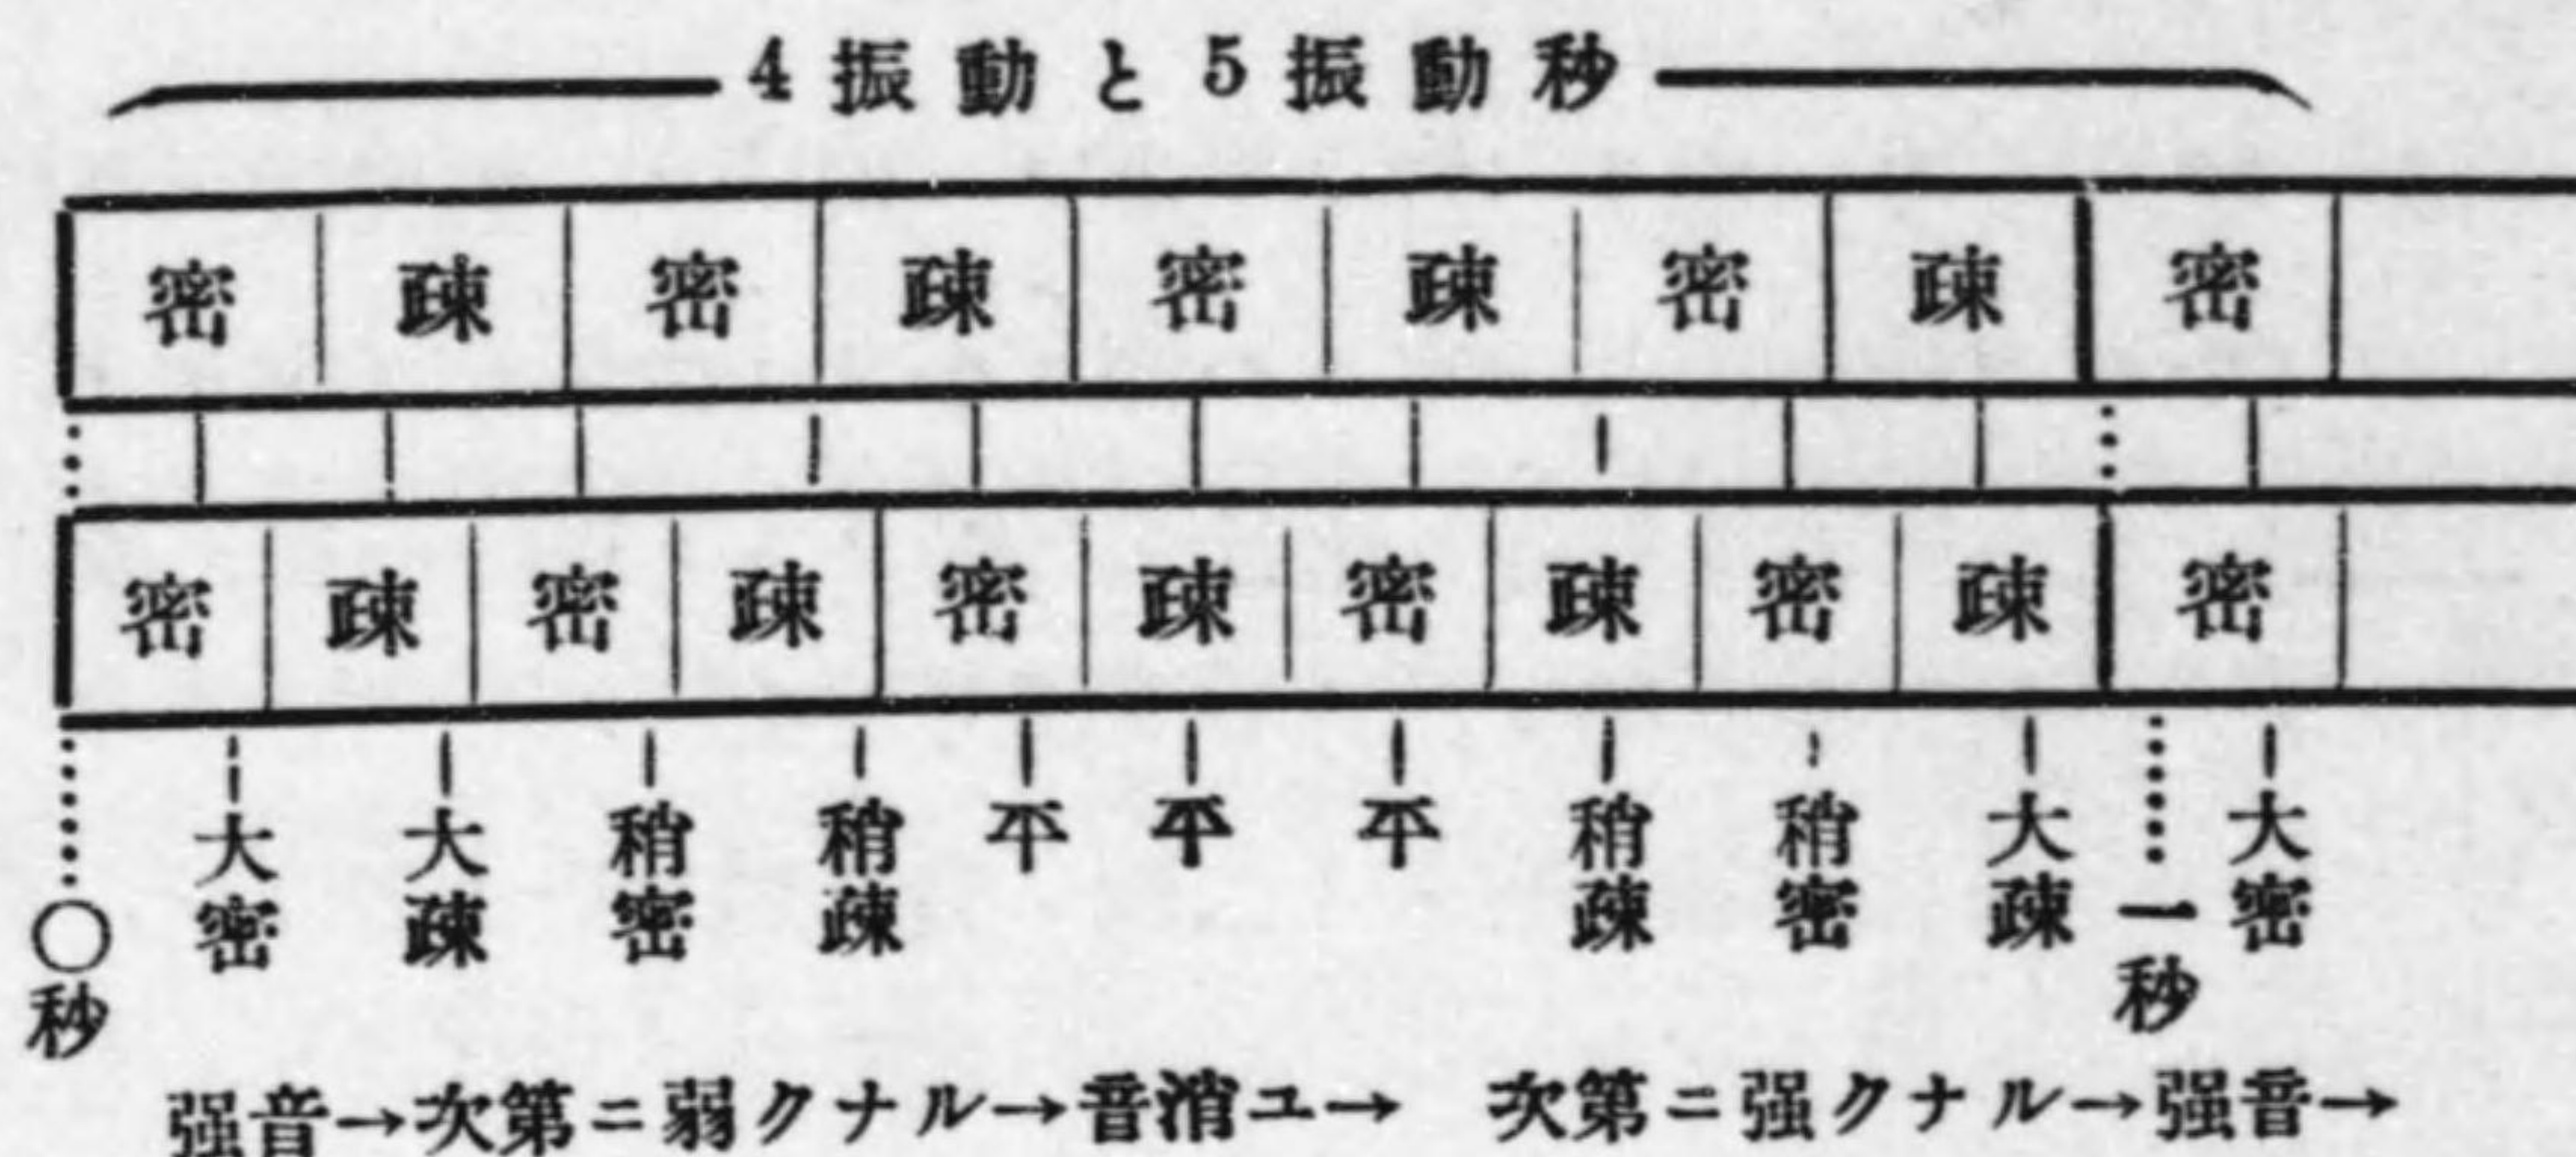 4振動と5振動秒
密 疎 密 疎 密 疎 密 疎 密
密 疎 密 疎 密 疎 密 疎 密 疎 密
〇秒 大密 大疎 稍密 稍疎 平 平 平 稍疎 稍密 大疎 一秒 大密
强音→次第ニ弱クナル→音消ユ→ 次第ニ强クナル→强音→